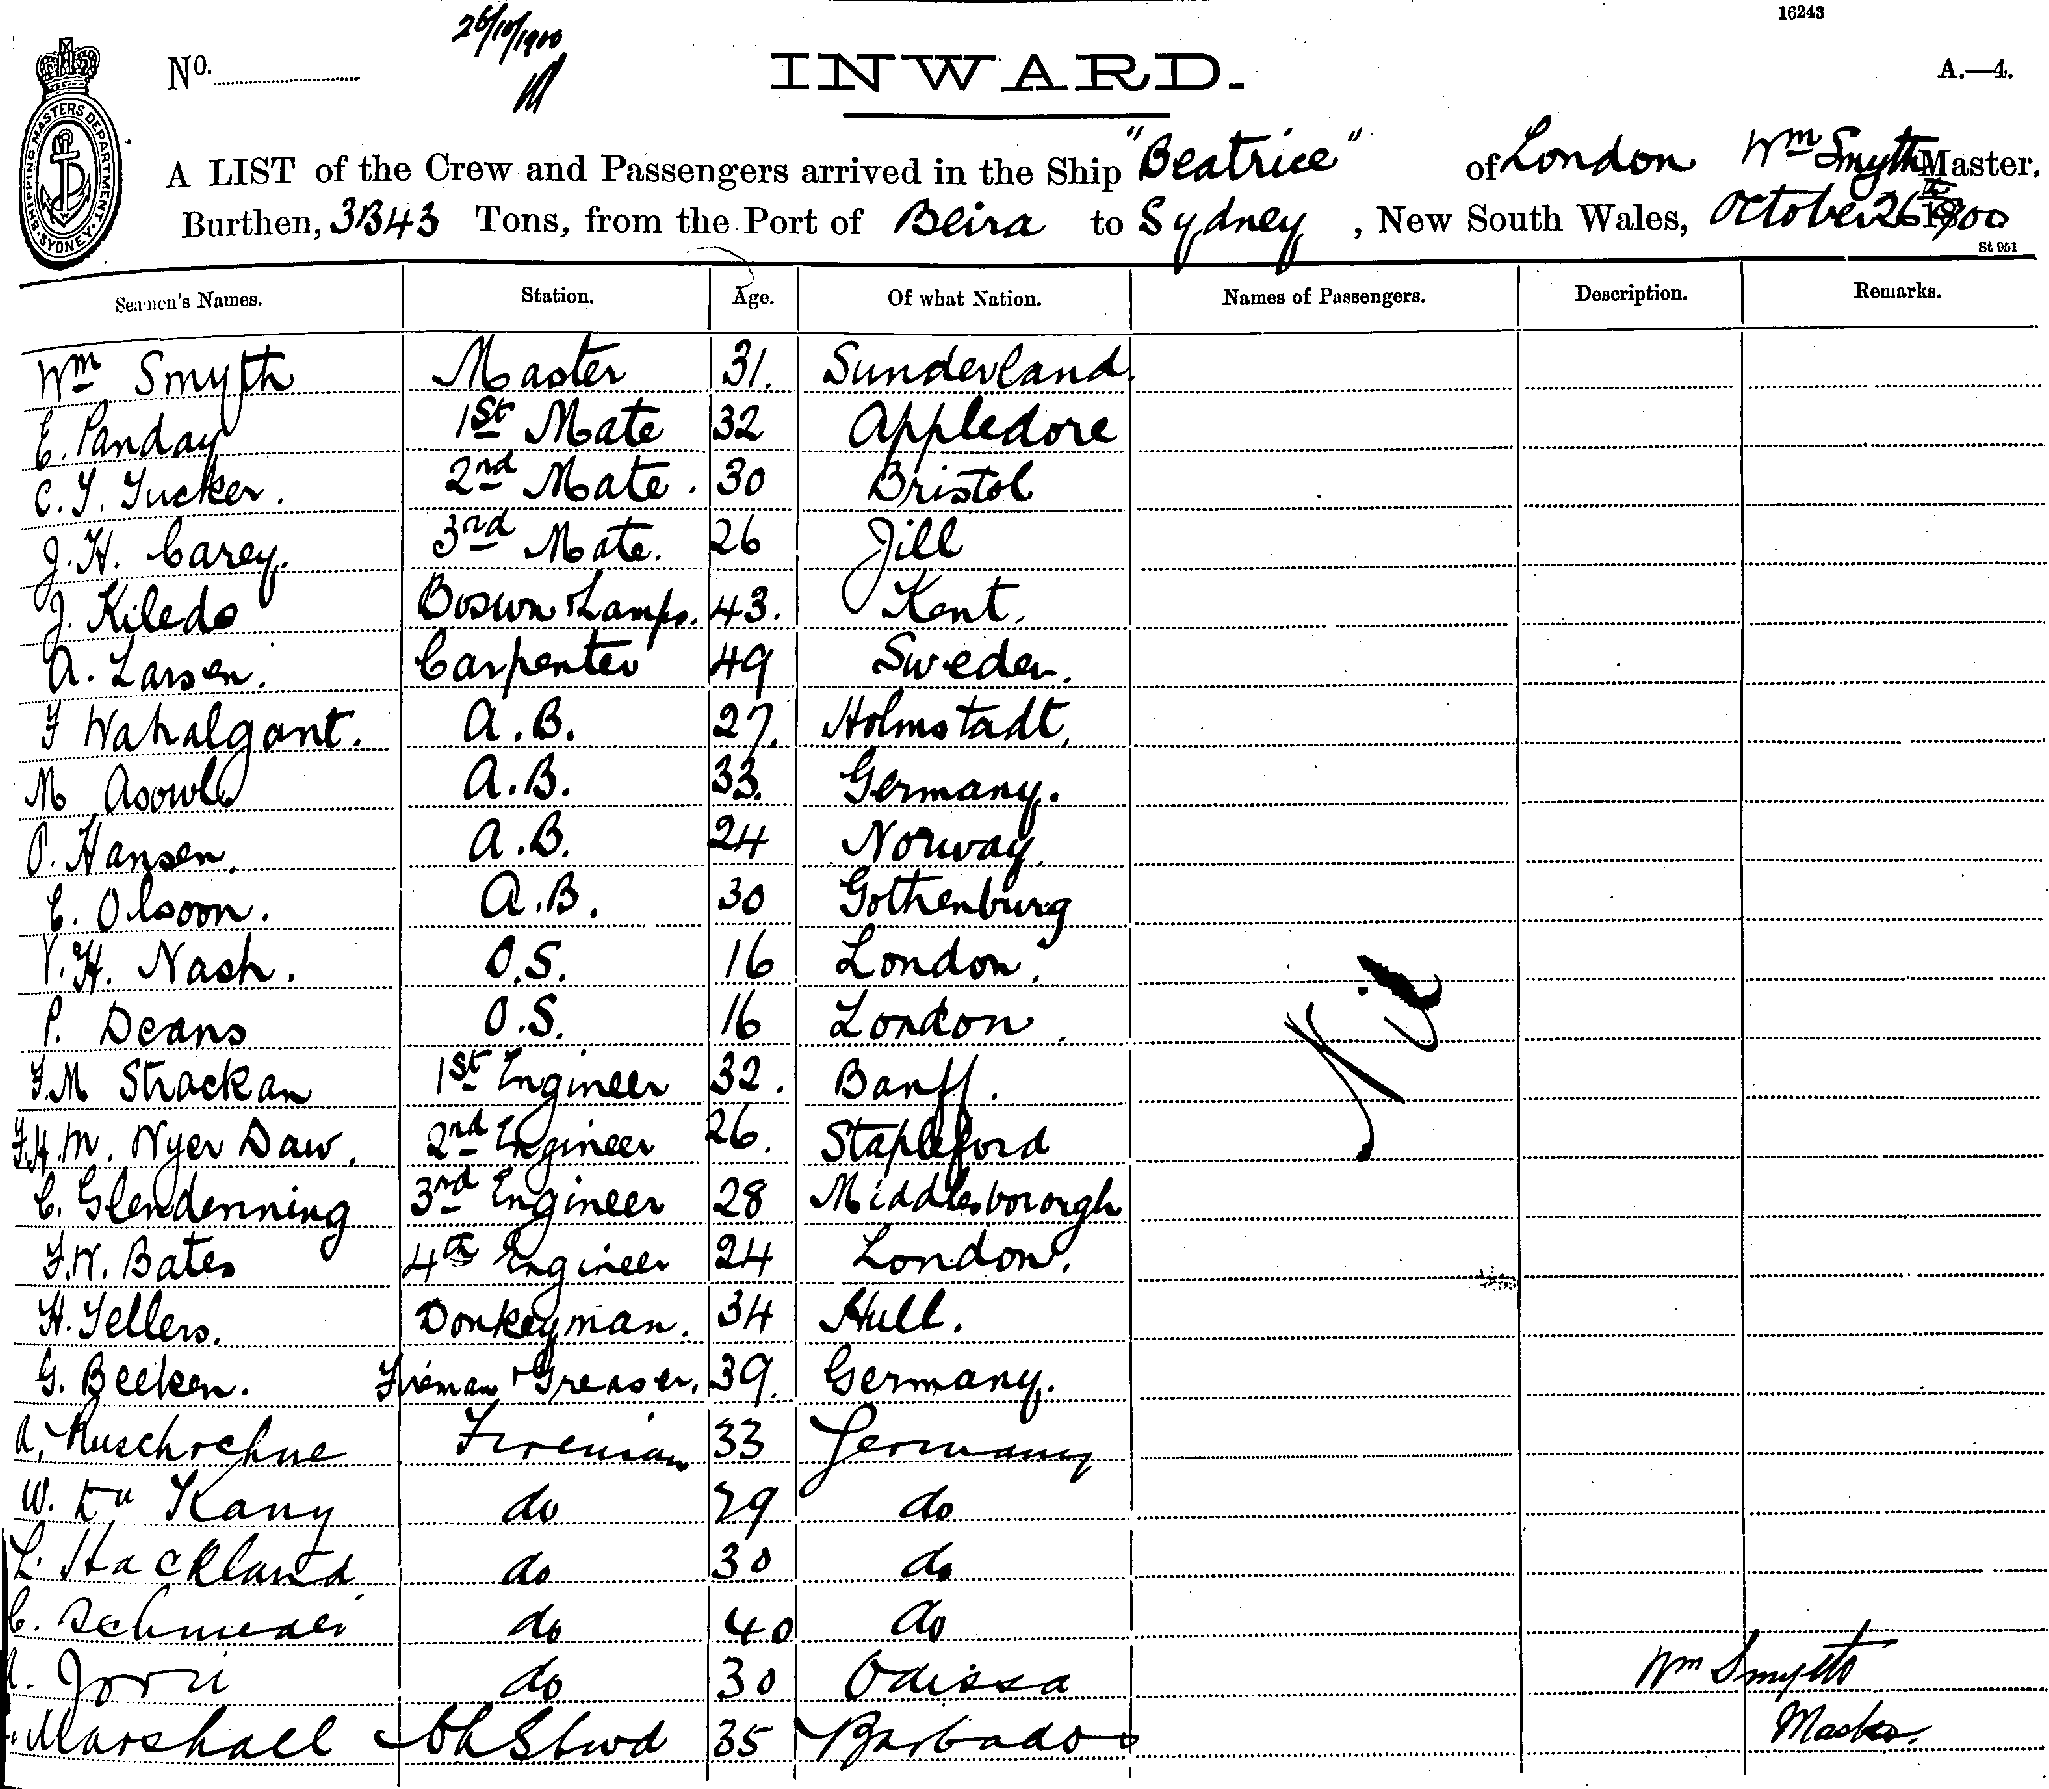 16243
26/10/1900
No.
INWARD.
A.—4.
SHIPPING MASTERS DEPARTMENT. SYDNEY.
A LIST of the Crew and Passengers arrived in the Ship "Beatrice" of London Wm Smyth Master.
Burthen, 3343 Tons, from the Port of Beira to Sydney, New South Wales, October 26th 1900
St 951
Seamen's Names. Station. Age. Of what Nation. Names of Passengers. Description. Remarks.
Wm Smyth Master 31. Sunderland.
E. Panday 1st Mate 32 Appledore
C. J. Tucker. 2nd Mate. 30 Bristol
J. H. Carey. 3rd Mate. 26 Jill
J. Kiledo Boswn & Lamps. 43. Kent.
A. Larsen. Carpenter 49 Sweden.
F Wahalgant. A.B. 27. Holmstadt.
M Asowle A.B. 33. Germany.
P. Hansen. A.B. 24 Norway.
C. Olsoon. A.B. 30 Gothenburg
V. H. Nash. O.S. 16 London.
P. Deans O.S. 16 London.
Nil
F.M Strackan 1st Engineer 32. Banff.
F.H.M. Nyer Daw. 2nd Engineer 26. Stapleford
C. Glendenning 3rd Engineer 28 Middlesbororgh
F.W. Bates 4th Engineer 24 London.
H. Sellers. Donkeyman. 34 Hull.
G. Beeken. Fireman & Greaser. 39. Germany.
A. Fireman 33 Germany
W. Kany do 29 do
L. Hackland do 30 do
C. do 40 do
do 30 Odissa
Wm Smyth
Marshall Ch Stwd 35 Barbados
Master.